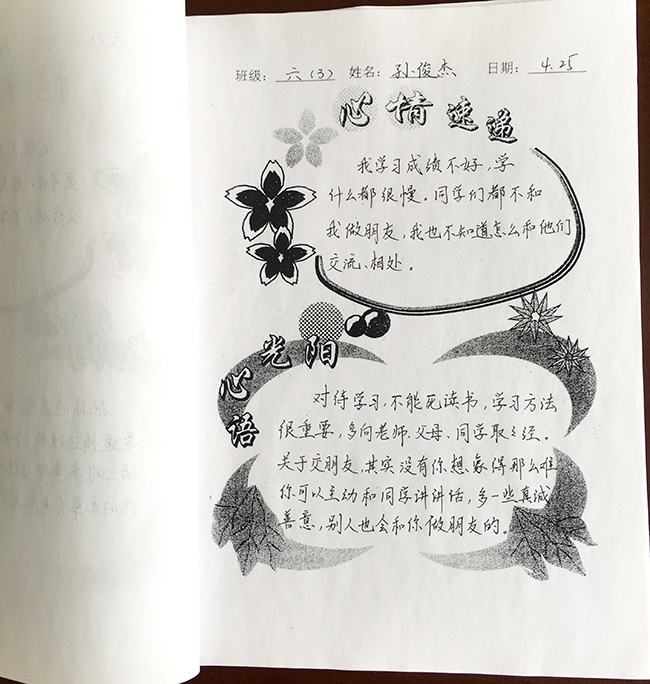 班级： 六（3） 姓名：孙俊杰 日期： 4.25
心情速递
我学习成绩不好，学
什么都很慢。同学们都不和
我做朋友，我也不知道怎么和他们
交流、相处。
阳光心语
对待学习，不能死读书，学习方法
很重要，多向老师、父母、同学取取经。
关于交朋友，其实没有你想象得那么难
你可以主动和同学讲讲话，多一些真诚
善意，别人也会和你做朋友的。